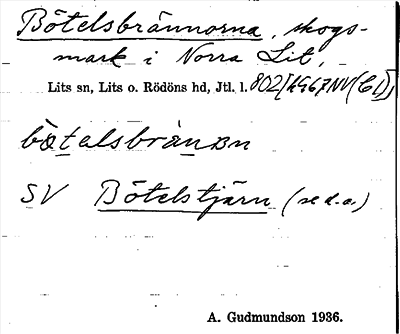 Bötelsbrännorna, skogs-
mark i Norra Lit,
Lits sn, Lits o. Rödöns hd, Jtl. l. 802[19G7NV(CD)]
SV Bötelstjärn (se d.o.)
A. Gudmundson 1936.